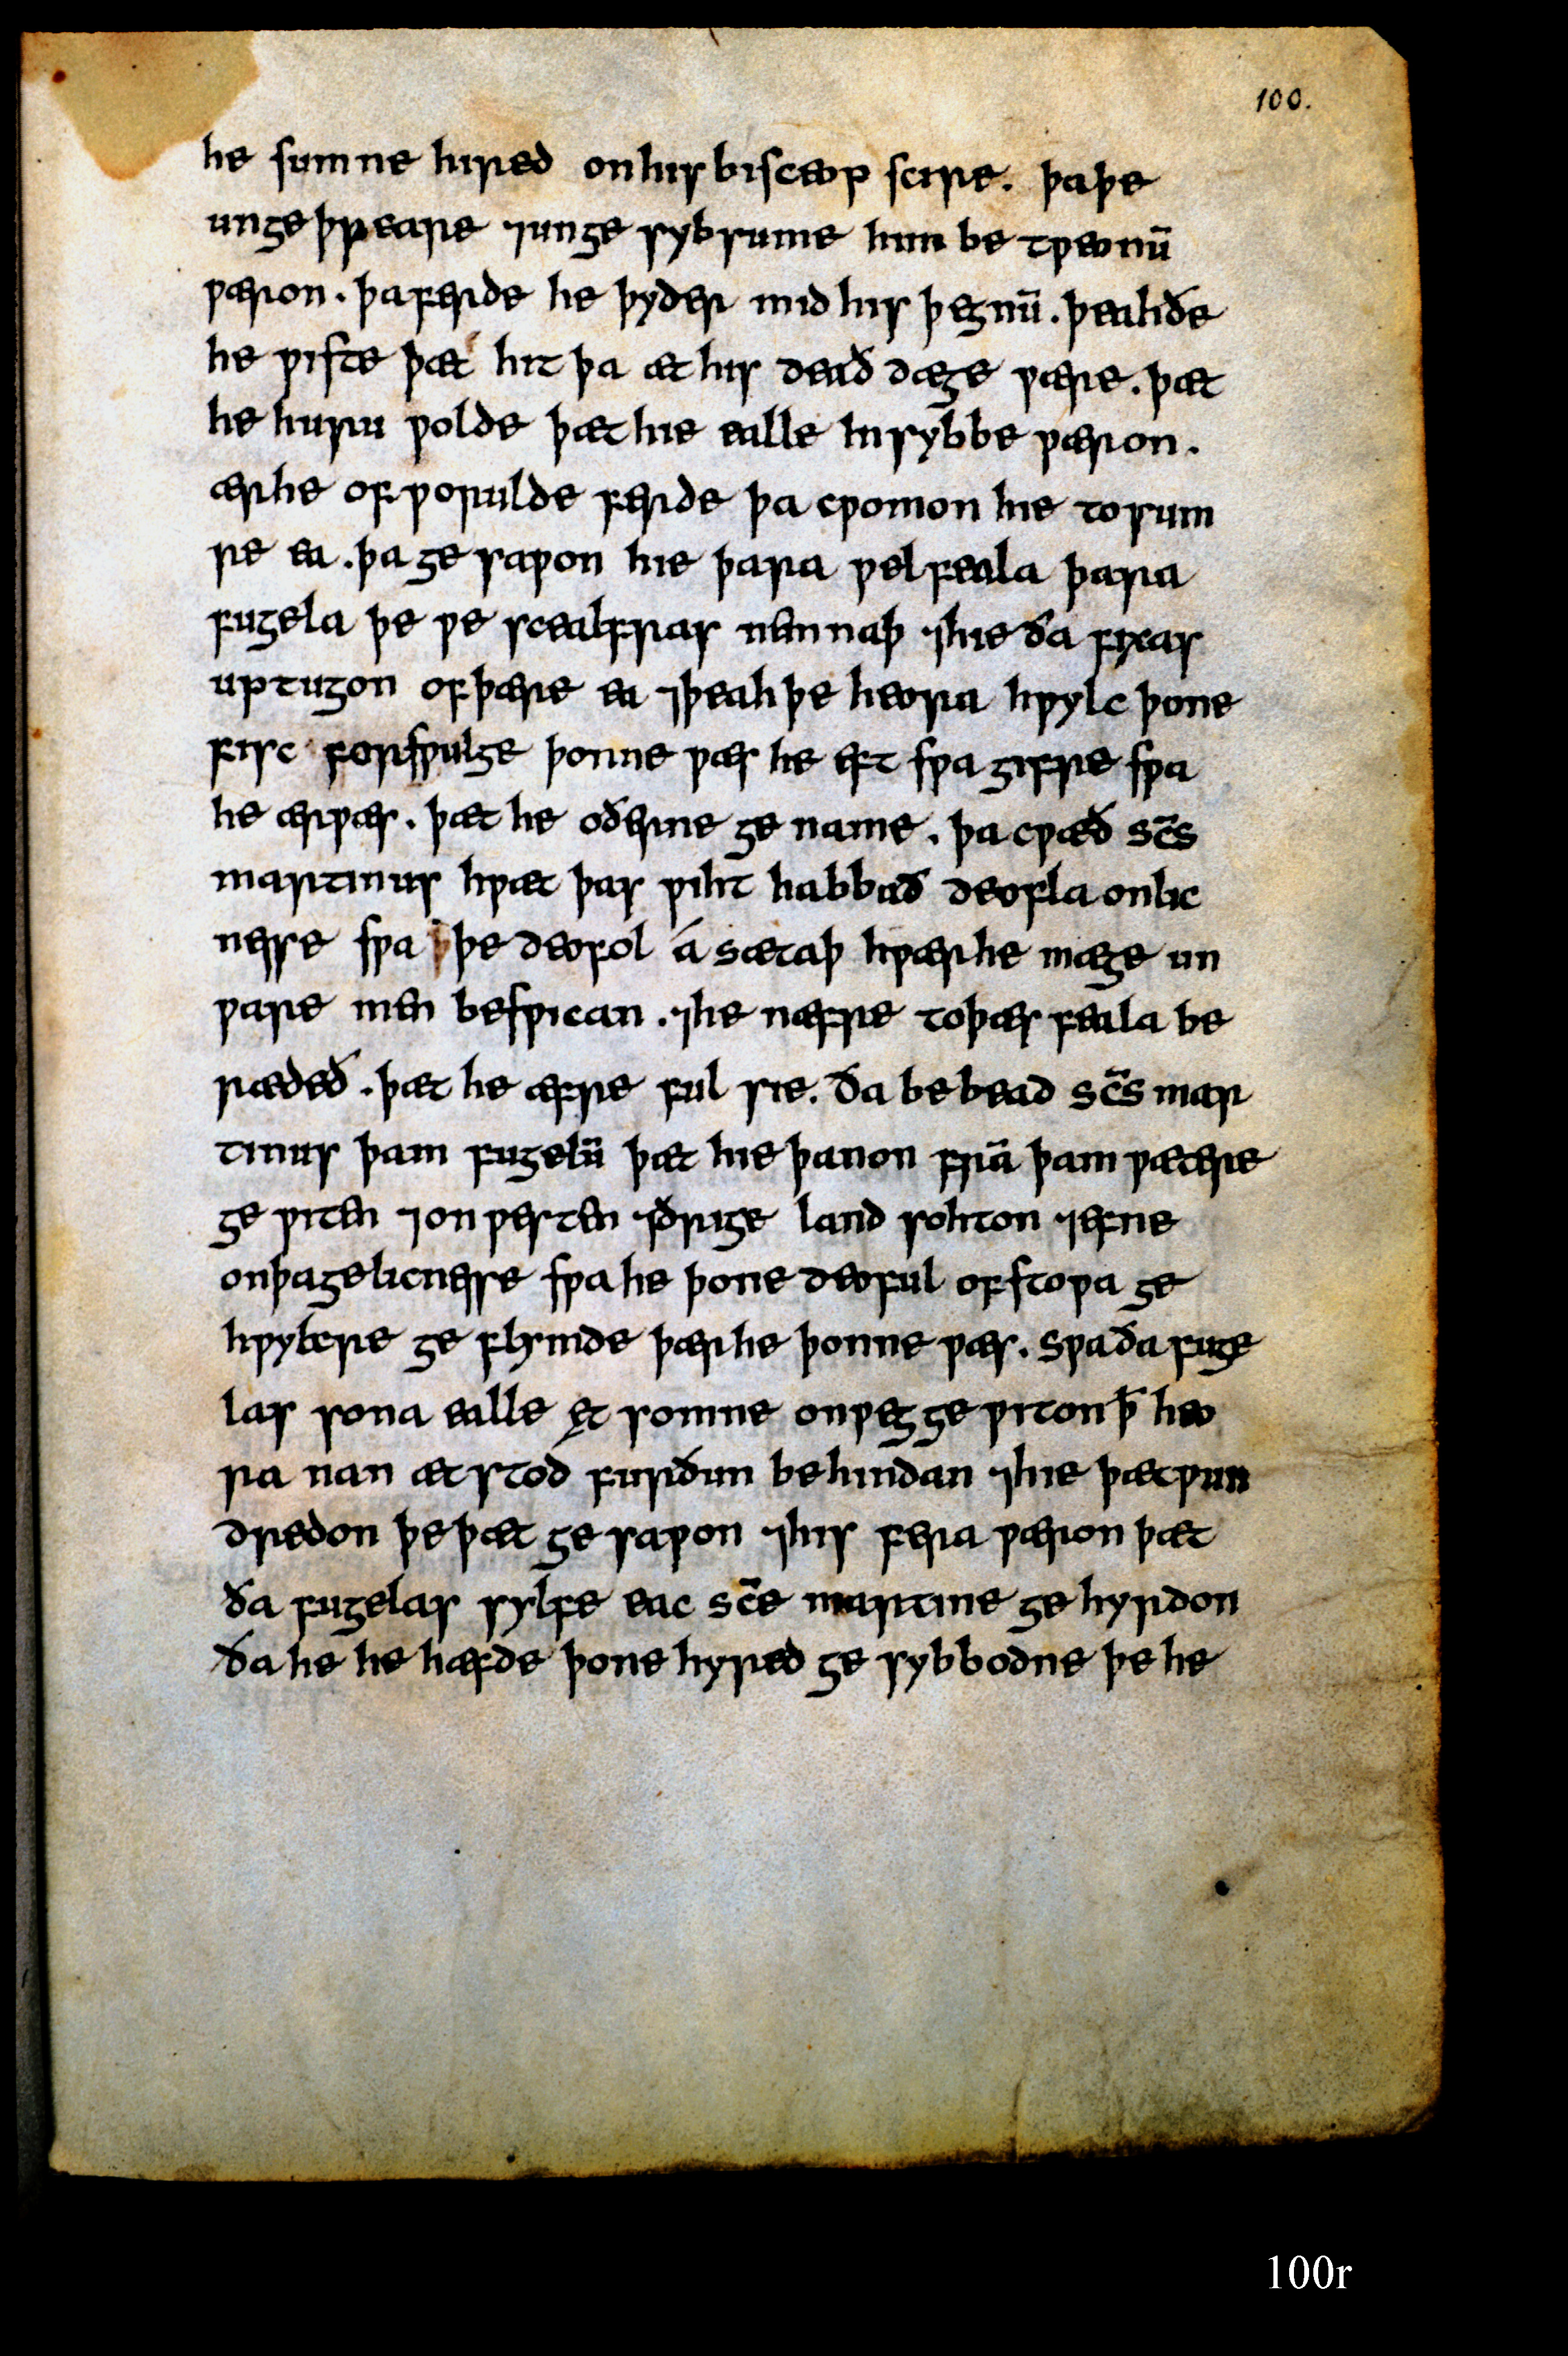 100.
he sumne hired on his bisceop scire. þa þe
unge þƿeare ⁊ unge sybsume him be tƿeonū
ƿæron. þa ferde he þyder mid his þegnū. þeah ðe
he ƿiste þæt hit þa æt his deað dæge ƿære. þæt
he huru ƿolde þæt hie ealle in sybbe ƿæron.
ær he of ƿorulde ferde þa cƿomon hie to sum
re ea. þa ge saƿon hie þara ƿel feala þara
fugela þe ƿe scealfras nemnaþ ⁊ hie ða fixas
up tugon of þære ea ⁊ þeah þe heora hƿylc þone
fisc forsƿulge þonne ƿæs he eft sƿa gifre sƿa
he ær ƿæs. þæt he oðerne ge name. þa cƿæð sc̄s
martinus hƿæt þas ƿiht habbað deofla onlic
nesse sƿa þe deofol á sætaþ hƿær he mæge un
ƿare men besƿican. ⁊ he næfre to þæs feala be
rædeð. þæt he æfre ful sie. ða be bead sc̄s mar
tinus þam fugelū þæt hie þanon frā þam ƿætere
ge ƿiten ⁊ on ƿesten ⁊ drige land sohton ⁊ efne
on þa gelicnesse sƿa he þone deoful of stoƿa ge
hƿylcre ge flymde þær he þonne ƿæs. sƿa ða fuge
las sona ealle æt somne on ƿeg ge ƿiton þ̄ heo
ra nan æt stod furðun be hindan ⁊ hie þæt ƿun
dredon þe þæt ge saƿon ⁊ his fera ƿæron þæt
ða fugelas sylfe eac sc̄e martine ge hyrdon
ða he he hæfde þone hyred ge sybbodne þe he
100r